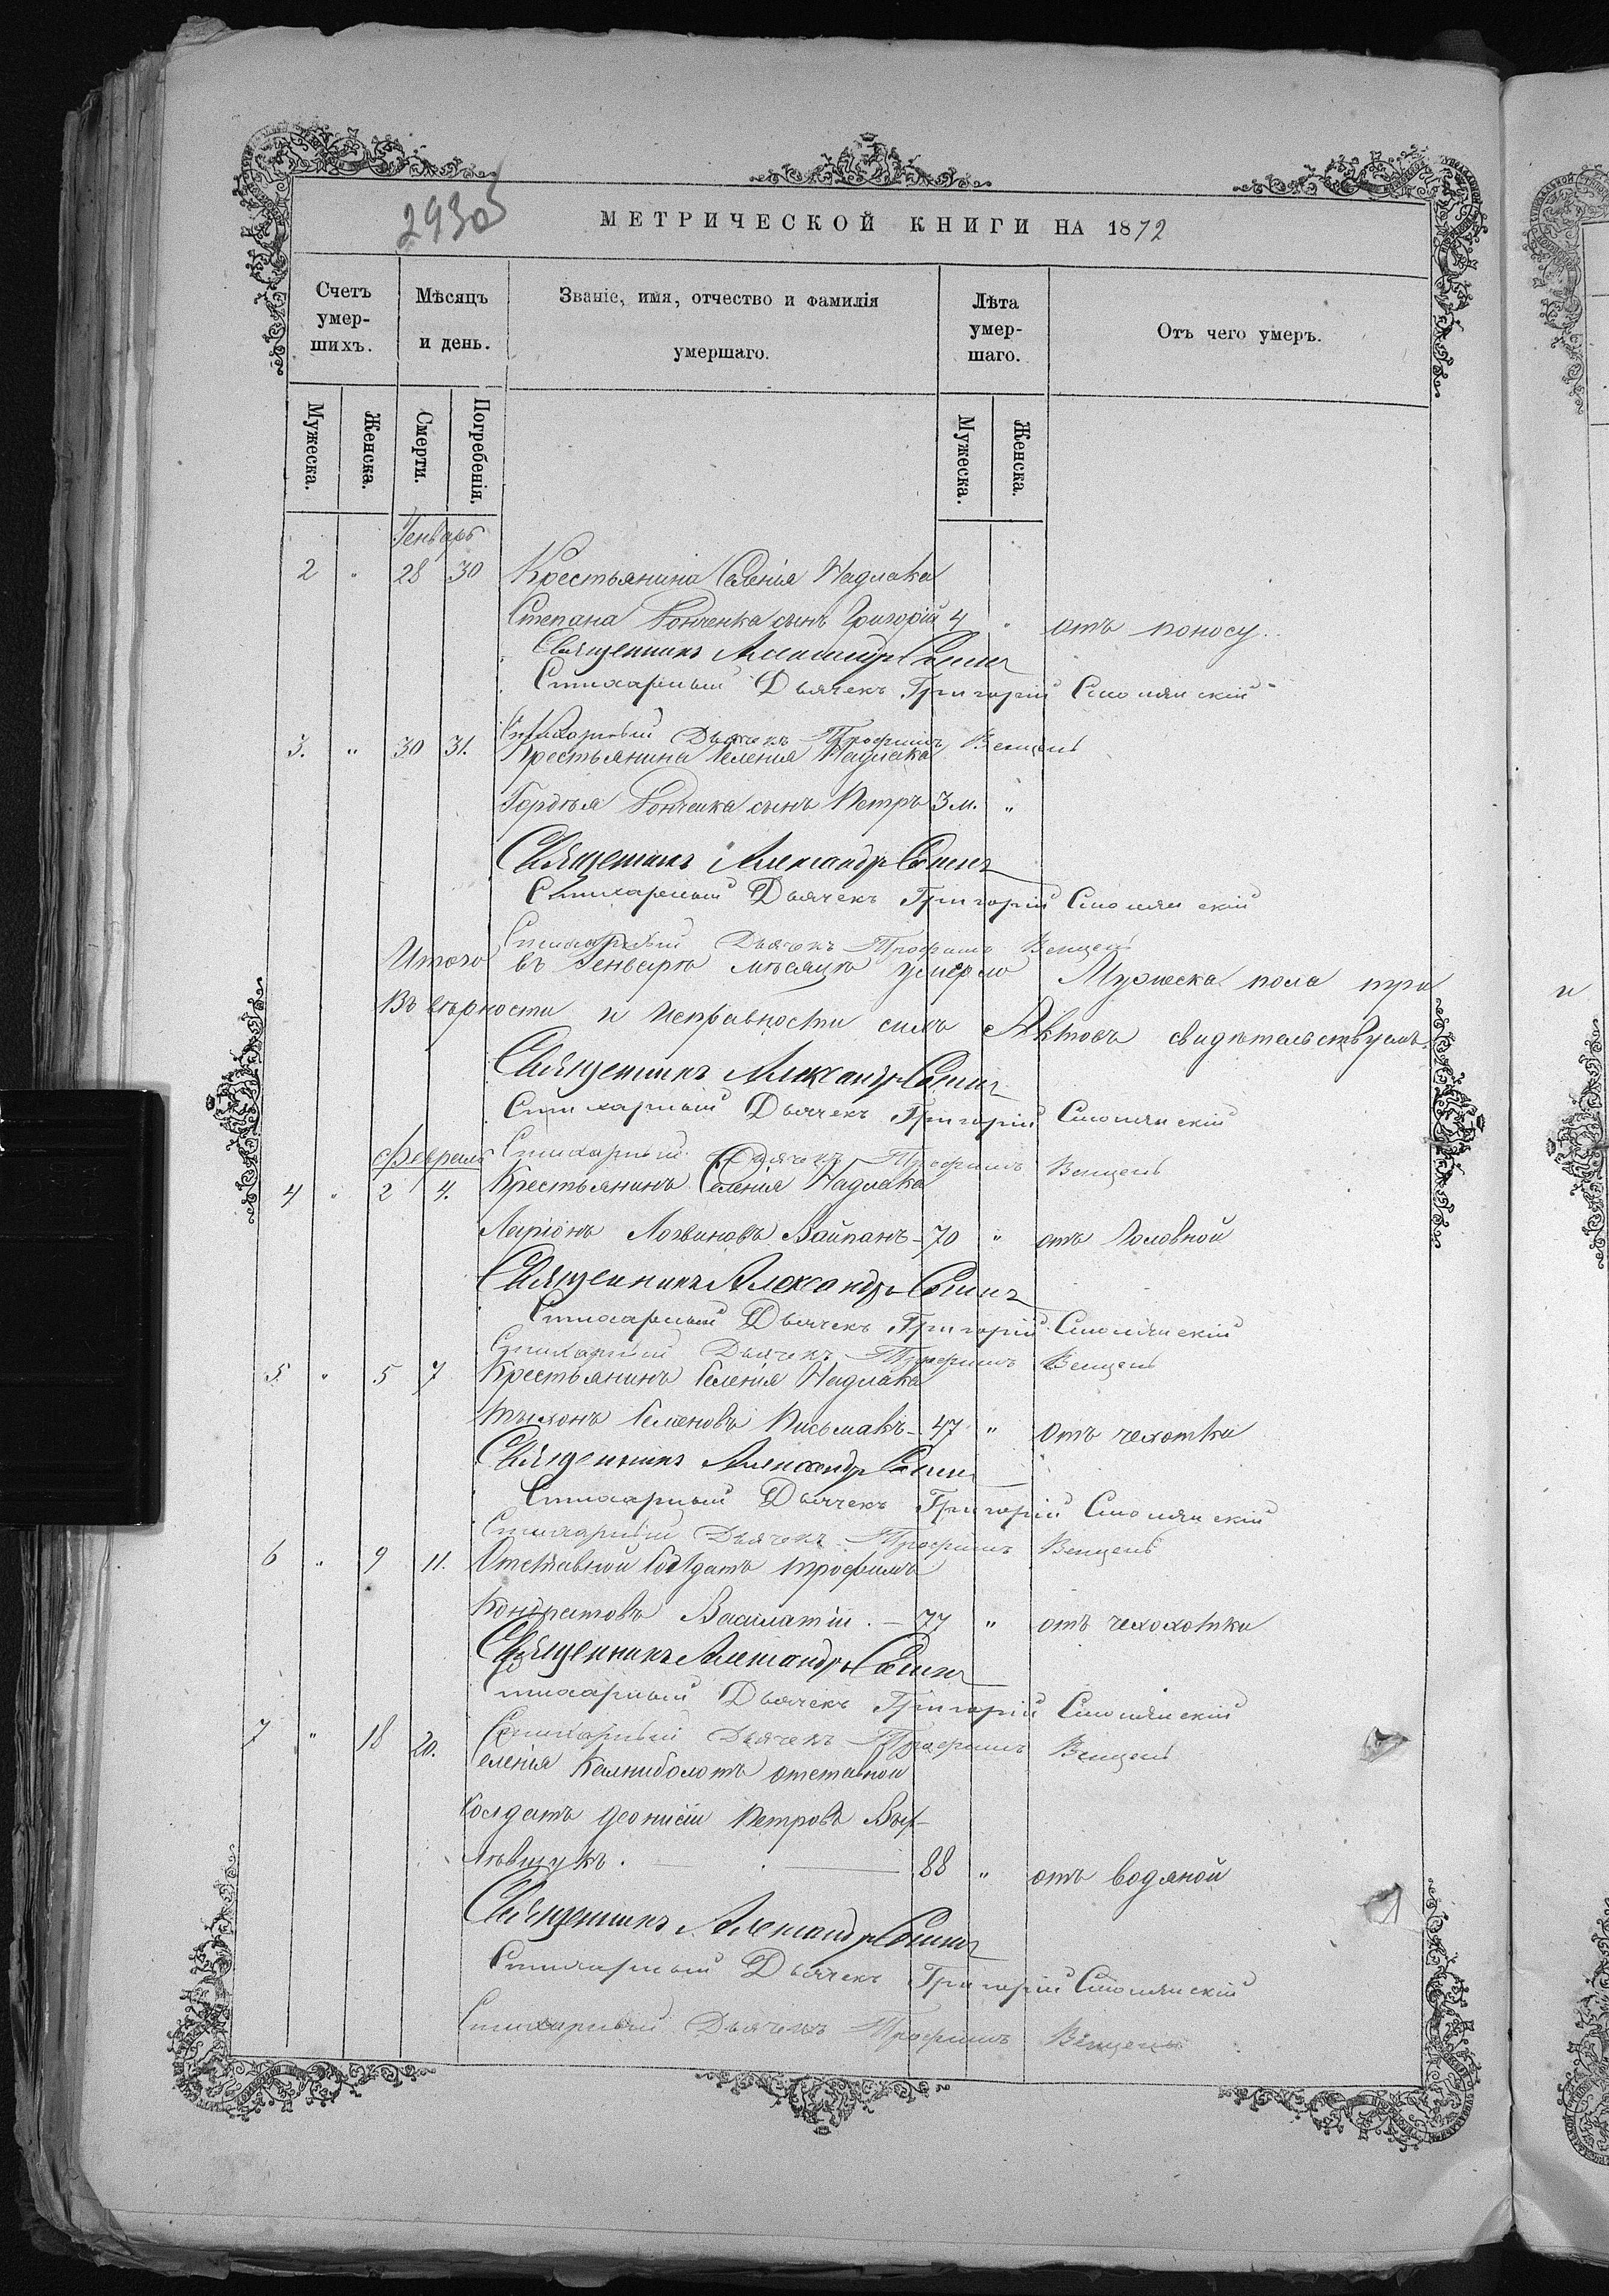 29305
МЕТРИЧЕСКОЙ КНИГИ НА 1872
Счетъ умер-шихъ.
Мѣсяцъ и день.
Званіе, имя, отчество и фамилія умершаго.
Лѣта умер-шаго.
Отъ чего умеръ.
Мужеска.
Женска.
Смерти.
Погребенія.
Мужеска.
Женска.
Генварь
2 " 28 30 Крестьянина Селенія Надлака
Степана сынъ Григорій 4 " отъ поносу.
Священникъ Александръ
Стихарный Дьячекъ Григорій Смолянскій
Стихарный Дьячекъ Трофимъ Венцень
3. " 30 31. Крестьянина Селенія Надлака
Гордѣя сынъ Петръ 3 м. "
Священникъ Александръ
Стихарный Дьячекъ Григорій Смолянскій
Стихарный Дьячекъ Трофимъ Венцень
Итого въ Генварѣ мѣсяцѣ умерло Мужеска пола три
Въ вѣрности и исправности сихъ Актовъ свидѣтельствуемъ.
Священникъ Александръ
Стихарный Дьячекъ Григорій Смолянскій
Стихарный Дьячекъ Трофимъ Венцень
Февраль
4 " 2 4. Крестьянинъ Селенія Надлака
Ларіонъ Логвиновъ Вайпанъ - 70 " отъ Головной
Священникъ Александръ
Стихарный Дьячекъ Григорій Смолянскій
Стихарный Дьячекъ Трофимъ Венцень
5 " 5 7 Крестьянинъ Селенія Надлака
Семеновъ Письмакъ - 47 " отъ чехотки
Священникъ Александръ
Стихарный Дьячекъ Григорій Смолянскій
Стихарный Дьячекъ Трофимъ Венцень
6 " 9 11. Отставной Солдатъ Трофимъ
Кондратовъ - 77 " отъ чехохотки
Священникъ Александръ
Стихарный Дьячекъ Григорій Смолянскій
Стихарный Дьячекъ Трофимъ Венцень
7 " 18 20. Селенія Калниболотъ отставной
Солдатъ Деонисій Петровъ
88 " отъ водяной
Священникъ Александръ
Стихарный Дьячекъ Григорій Смолянскій
Стихарный Дьячекъ Трофимъ Венцень
и